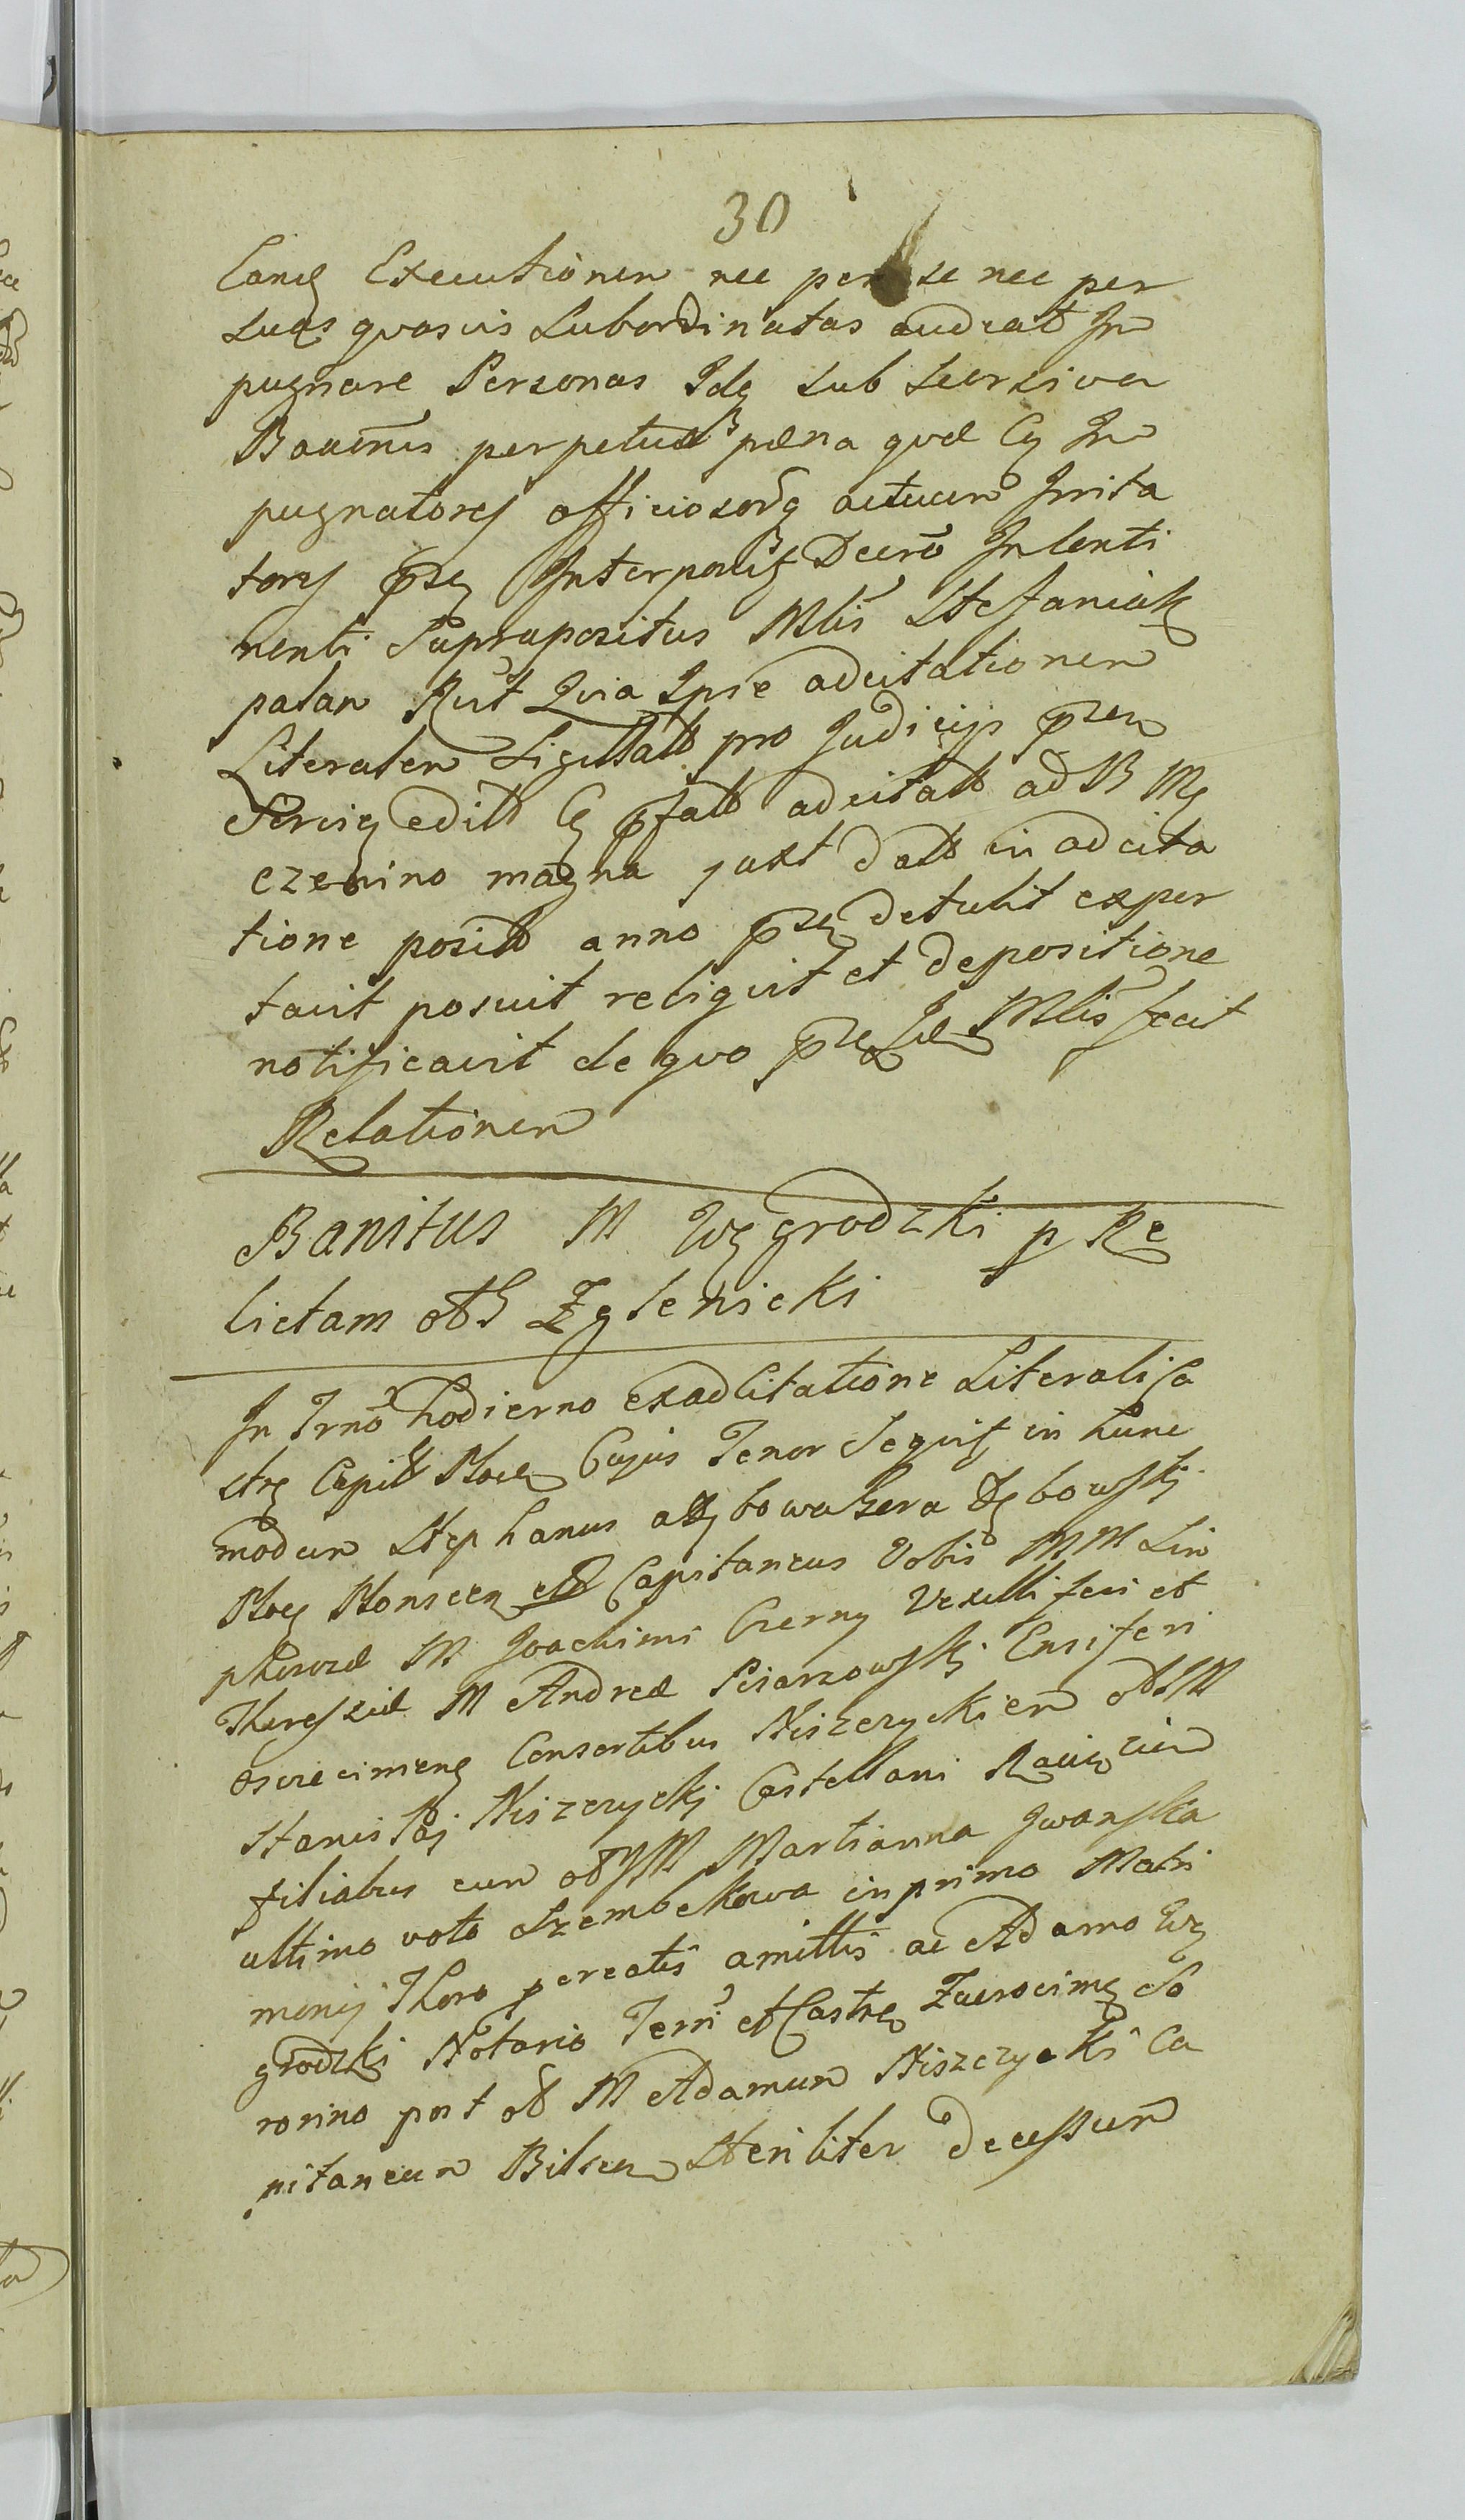 30
Eamq Executionem nec per se nec per
suas quasvis Subordinatas audeat Im
pugnare Personas Idq sub
Bannis perpetuæ pæna qvæ Cq Im
pugnatores officiosorq actuum Irrita
tores pse Interpositq Decrō In
nenti Suprapositus Mlis Stefaniak
palam Rūt Qvia Ipse adcitationem
Literalem Sigillatt pro Judicijs psen
editt pfatt adcitatt ad B
magna juxt datt in adcita
tione positt anno psen detulit exper
tavit posuit reliqvit et depositione
notificavit de qvo pse Mlis fecit
Relationem
Banitus M Wygrodzki p Re
lictam oth Zglenicki
In Trno hodierno exadcitatione Literali Ca
stre Capit Ploce Cujus Tenor Seqvitq in hunc
modum Stephanus a Dębowa Gera Dębowskj
Ploce Plonscen ett Capitaneus Vobis MM Lin
M Joachimi Czerny Vexilliferi et
Theressiæ M Andreæ Ensiferi
osviecimens Consortibus Niszczyckiem oth M
Stanislaj Niszczyckj Castellani Raciązien
filiabus cum oth M Martianna Jwanska
ultimo voto Szembekowa in primo Matri
monij Thoro pcreatis amittis ac Adamo Wy
grodzki Notario Terri et Castre Zawscime So
rorino post oth M Adamum Niszczycki Ca
pitaneum Bilscen Steriliter decessum